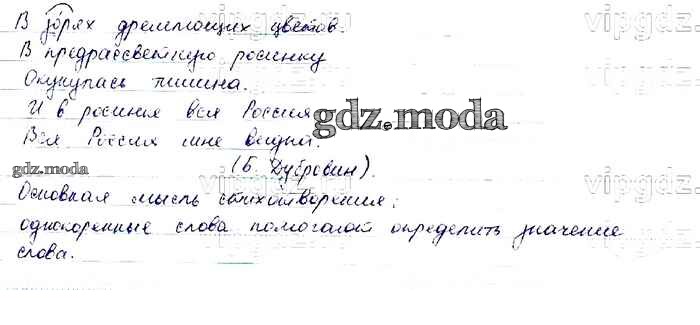 В зорях дремлющих цветов.
В предрассветную росинку
Окунулась тишина.
И в росинке вся Россия
Вся Россия мне видна.
(Б. Дубровин).
Основная мысль стихотворения:
однокоренные слова помогают определить значение
слова.
gdz.moda
gdz.moda
vipgdz.
vipgdz.
vipgdz.
vipgdz.